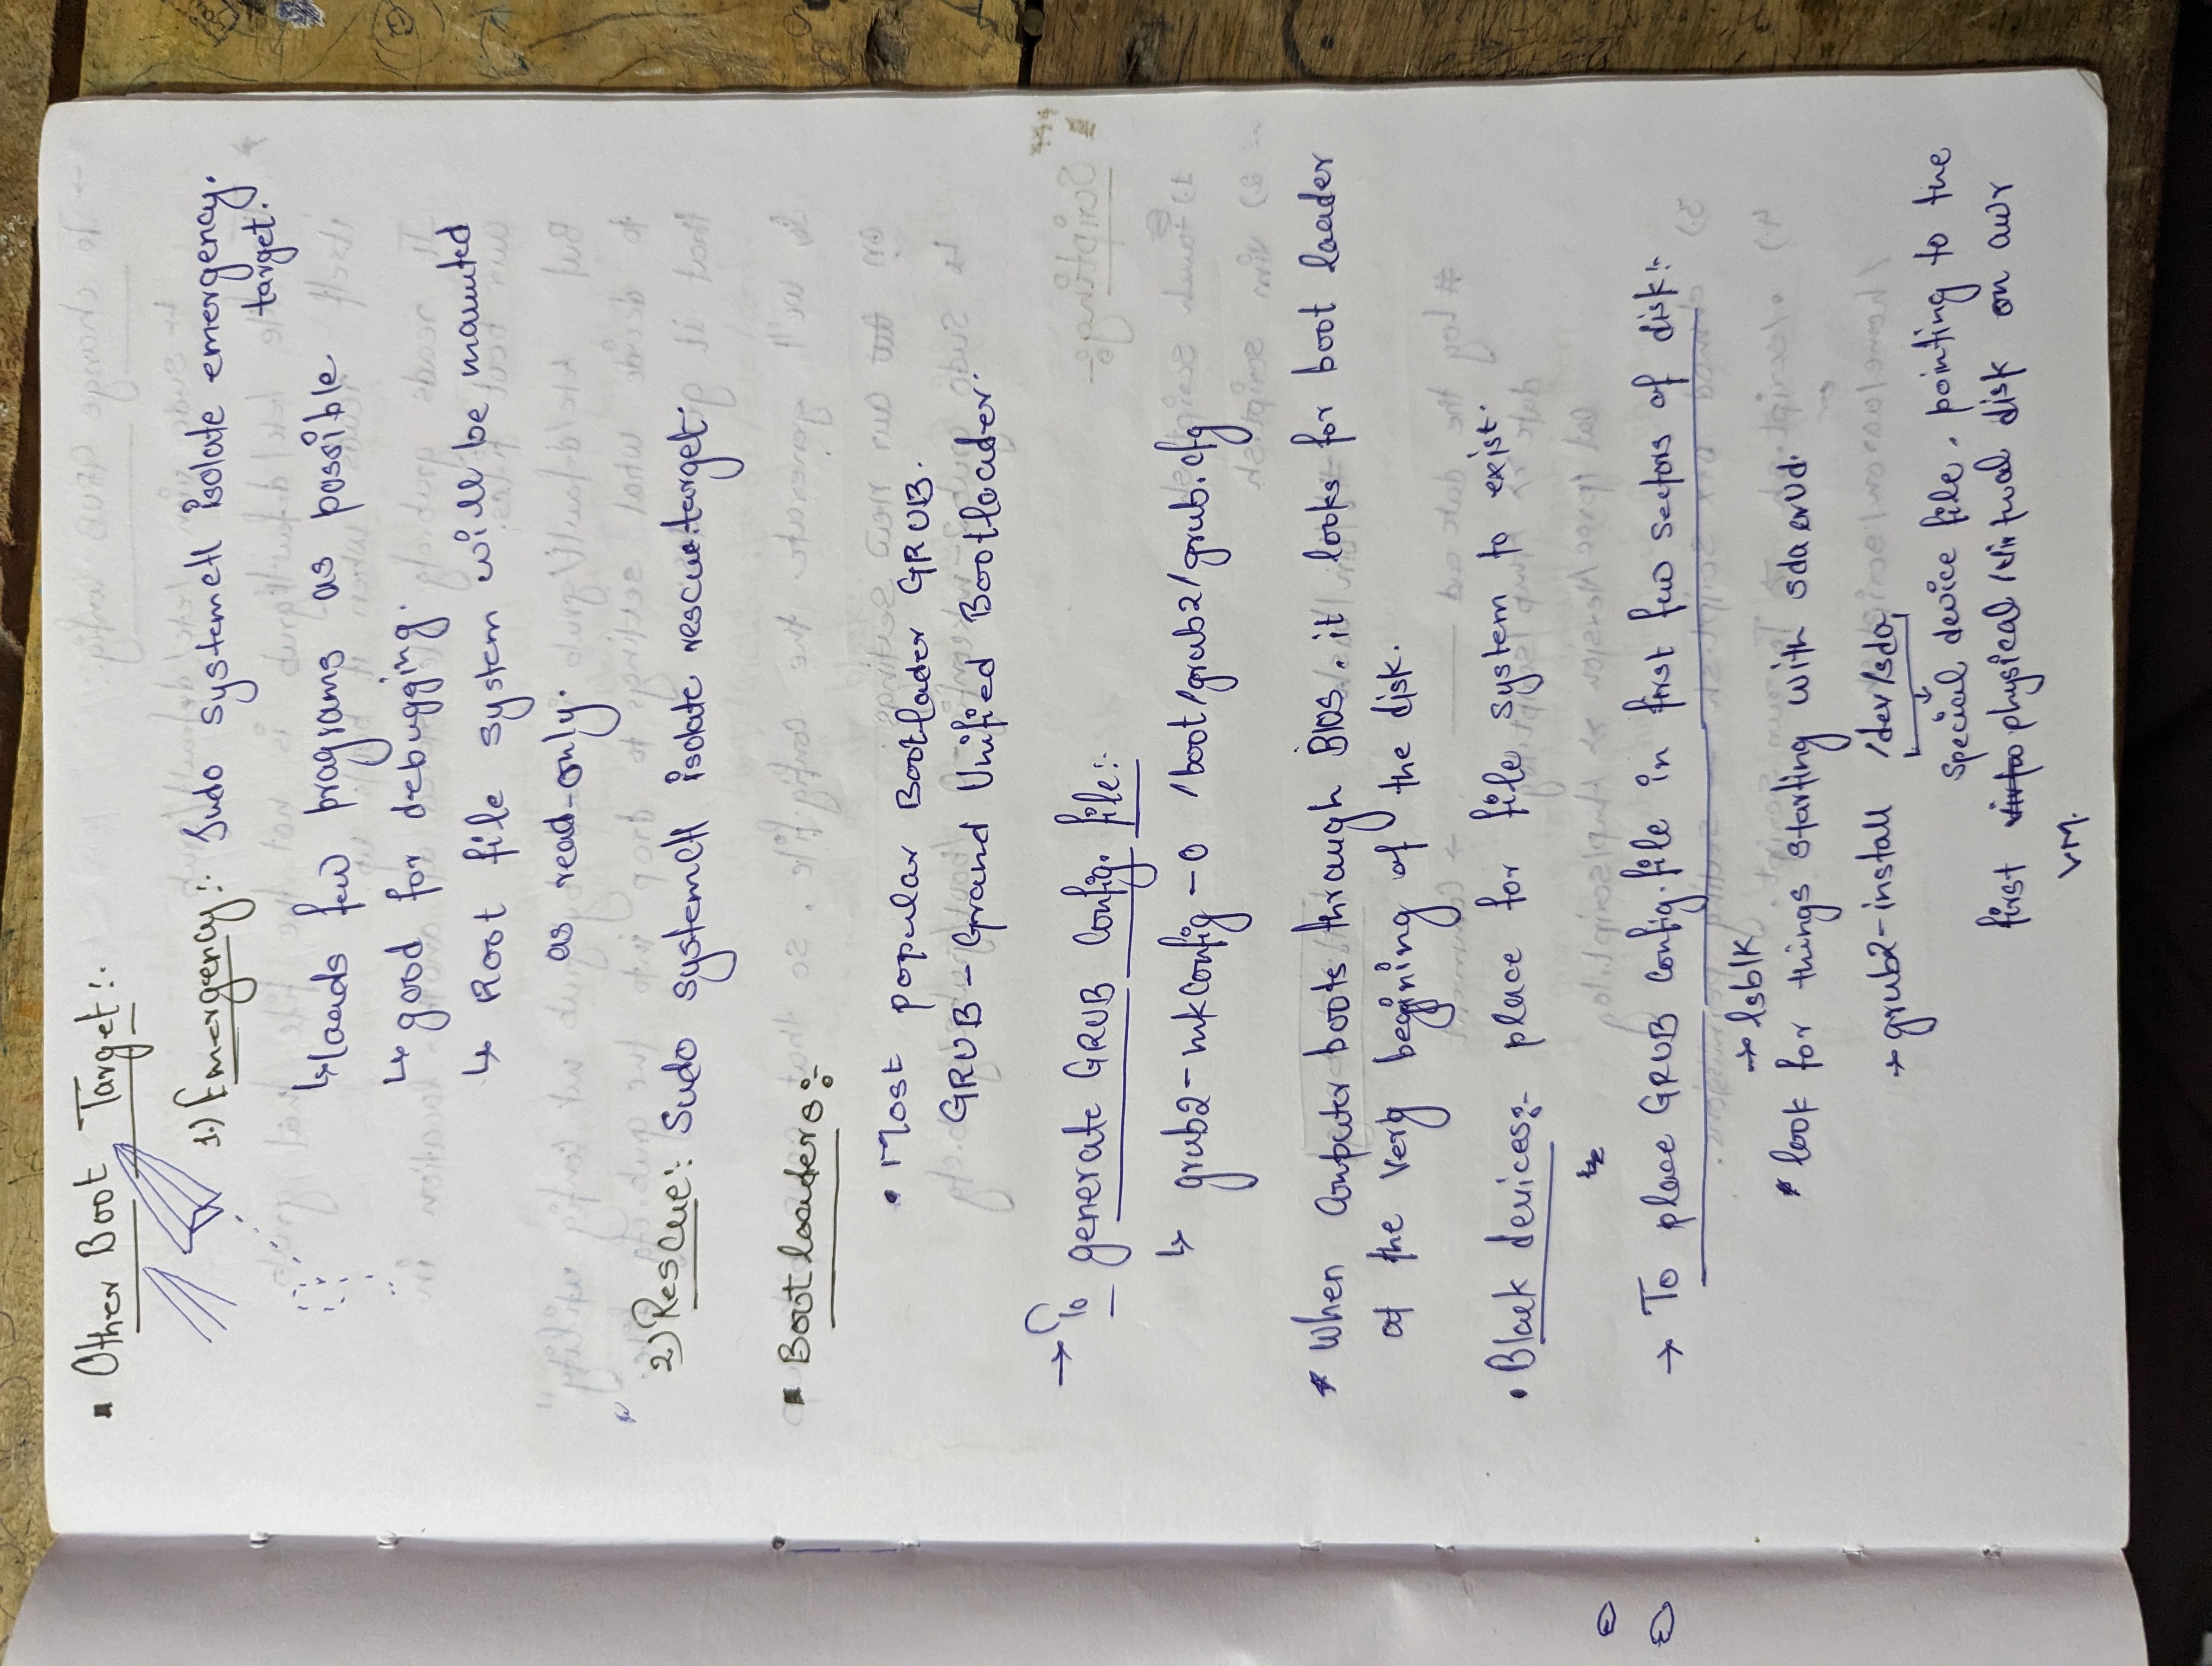 ▪ Other Boot Target :-
1.) Emergency :- Sudo systemctl isolate emergency.
target.
↳ loads few programs as possible
↳ good for debugging.
↳ Root file system will be mounted
as read-only.
2) Rescue :- Sudo systemctl isolate rescue.target.
▪ Bootloaders :-
• Most popular Bootloader GRUB.
GRUB - Grand Unified Bootloader.
→ To generate GRUB Config. file :-
↳ grub2-mkconfig -o /boot/grub2/grub.cfg
* When computer boots through BIOS, it looks for boot loader
at the very beginning of the disk.
• Block devices :- place for file system to exist.
→ To place GRUB Config. file in first few sectors of disk :-
→ lsblk
* look for things starting with sda or vd.
→ grub2-install /dev/sda
Special device file, pointing to the
first physical/virtual disk on our
VM.